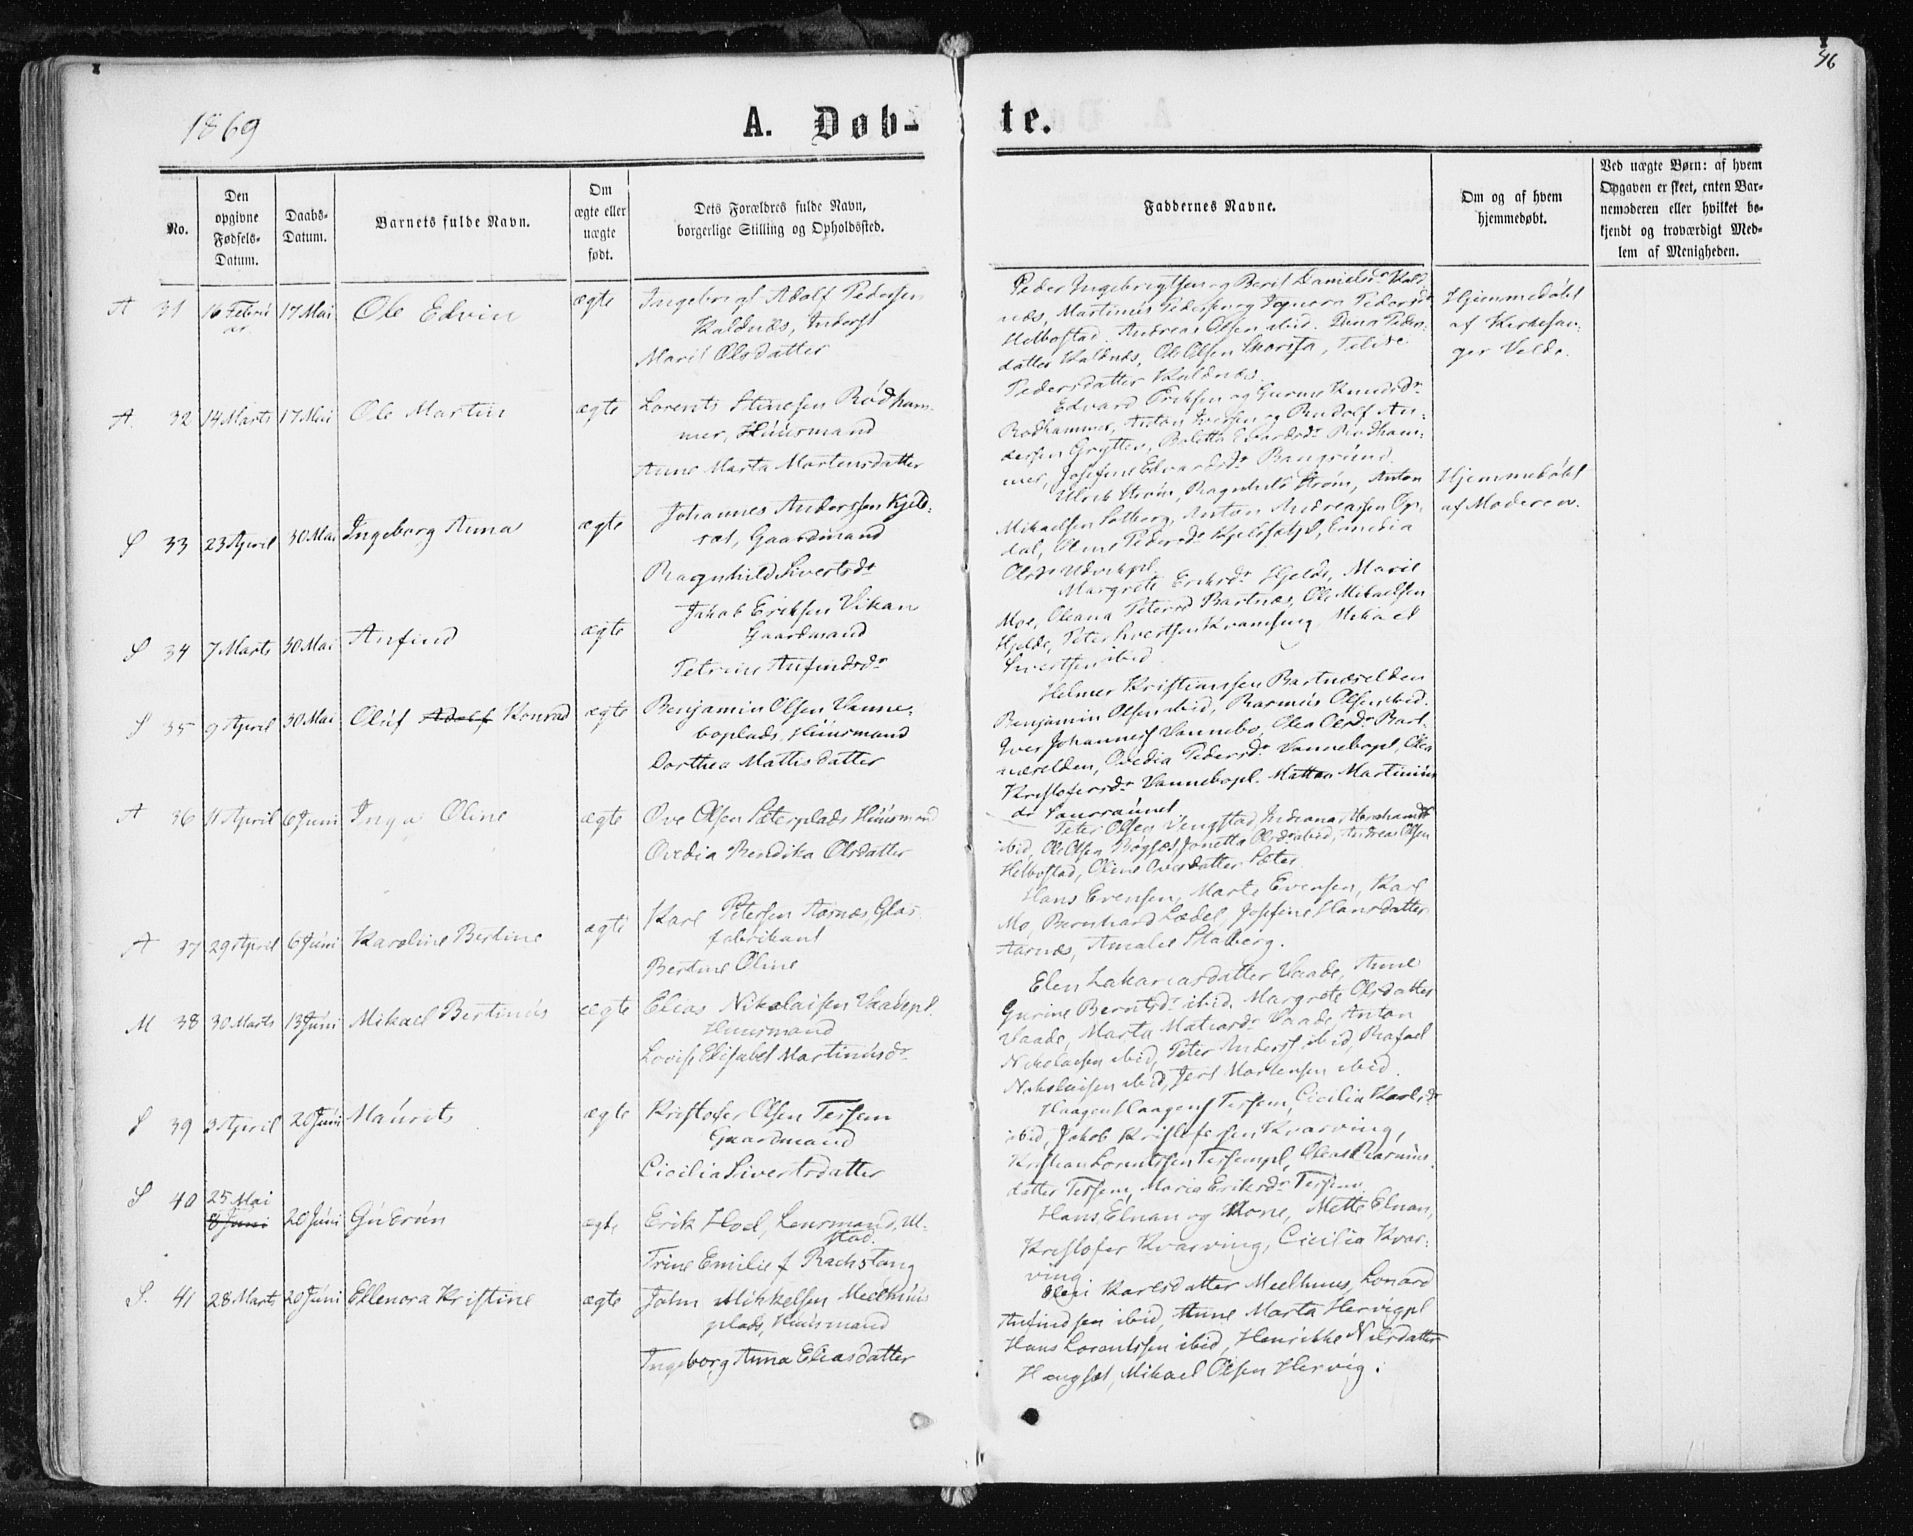 46
1869
A. Døb-
te.
No.
Den
opgivne
Fødsels-
Datum.
Daabs-
Datum.
Barnets fulde Navn.
Om
ægte eller
uægte
født.
Dets Forældres fulde Navn,
borgerlige Stilling og Opholdssted.
Faddernes Navne.
Om og af hvem
hjemmedøbt.
Ved uægte Børn: af hvem
Opgaven er skeet, enten Bar-
nemoderen eller hvilket be-
kjendt og troværdigt Med-
lem af Menigheden.
A 31 16 Febru
ar. 17 Mai Ole Edvin ægte Ingebrigt Adolf Pedersen
Kaldnæs, Inderst
Marit Olsdatter
Peder Ingebrigtsen og Berit Danielsdr Kald
næs, Martinus Pedersen og Pedersdr
Helbostad. Andreas Olsen ibid. Peders-
datter Kaldnæs, Ole Olsen
Pedersdatter Kaldnæs.
Hjemmedøbt
af Kirkesan-
ger Velde.
A. 32 14 Marts 17 Mai Ole Martin ægte Lorents Stinesen Rødham-
mer, Huusmand
Anne Marta Mortensdatter
Edvard Eriksen og Gurine Knudsdr
Rødhammer, Anton Iversen og Rudolf An-
dersen Grytten, Boletta Edvardsdr Rødham-
mer, Josefine Edvardsdr Bangsund.
S 33 23 April 30 Mai Ingeborg Anna ægte Johannes Anderssen Kjels-
sæt, Gaardmand
Ragnhild Sivertsdr
Ulrik Strøm, Ragnhild Strøm, Anton
Mikaelsen Solberg, Anton Andreassen Op-
dal, Oline Pedersdr
Olsdr
Hjemmedøbt
af Moderen.
S 34 7 Marts 30 Mai Anfind ægte Jakob Eriksen Vikan
Gaardmand
Petrine Anfindsdr
Margrete Eriksdr Hjelde, Marit
Moe, Oleana Petersd Bartnæs, Ole Mikaelsen
Hjelde, Peter Sivertsen Kvamseng, Mikael
Sivertsen ibid.
S 35 9 April 30 Mai Oluf Adolf Konrad ægte Benjamin Olsen Vanne-
boplads, Huusmand
Dorthea Mattisdatter
Helmer Kristiansen Bartnæselden
Benjamin Olsen ibid, Rasmus Olsen ibid.
Iver Johannesf Vannebo, Olea Olsdr Bart-
næselden, Ovedia Pedersdr Vannebopl. Olea
Kristofersdr Vannebopl. Martinius
A 36 11 April 6 Juni Inga Oline ægte Ove Olsen Sæterplads Huusmand
Ovedia Bendika Olsdatter
Peter Olsen Vengstad, Indiana Abrahamsdr
ibid, Ole Olsen Bogsæt, Jonetta Olsdr ibid, Andreas Olsen
Helbostad, Oline Ovesdatter Sæter.
A 37 29 April 6 Juni Karoline Bertine ægte Karl Petersen Aarnæs, Glas-
fabrikant
Bertine Oline
Hans Evensen, Marte Evensen, Karl
Mo, Bernhard Lædel, Josefine Hansdatter
Aarnæs, Amalie Staberg.
M 38 30 Marts 13 Juni Mikael Bertinus ægte Elias Nikolaisen Vaadepl.
Huusmand
Lovise Elisabet Martinusdr
Elen Zakariasdatter Vaade, Anne
Gurine Berntsdr ibid. Margrete Olsdatter
Vaade, Marta Matiasdr Vaade, Anton
Nikolaisen ibid, Peter Andersf ibid, Rafael
Nikolaisen ibid, Jert Mortensen ibid.
S 39 3 April 20 Juni Maurits ægte Kristofer Olsen Tessem
Gaardmand
Cicilia Sivertsdatter
Haagen Haagensf Tessem, Cicilia Karlsdr
ibid, Jakob Kristofersen Kvarving,
Kristian Lorentssen Tessempl, Olea Rasmus-
datter Tessem, Maria Eriksdr Tessem.
S 40 25 Mai
8 Juni 20 Juni Gudrun ægte Erik Hoel, Lensmand, Ul-
stad.
Trine Emilie f Rachstang
Hans Elnan og Kone, Mette Elnan,
Kristofer Kvarving, Cicilia Kvar-
ving
S. 41 28 Marts 20 Juni Ellenora Kristine ægte John Mikkelsen Meelhuus
plads, Huusmand
Ingeborg Anna Eliasdatter
Karlsdatter Meelhuus, Lonard
Anfindsen ibid, Anne Marta Hervigpl
Hans Lorentssen ibid, Henrikke Nilsdatter
Hongsæt, Mikael Olsen Hervig.